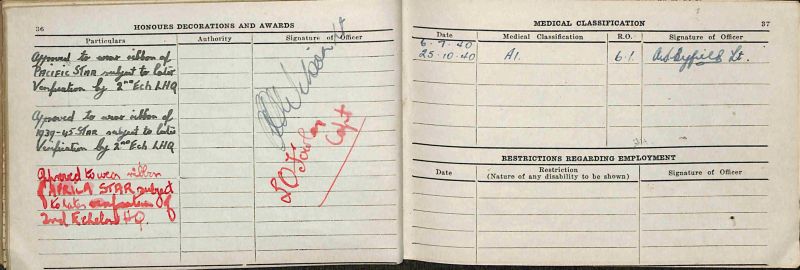 36
HONOURS DECORATIONS AND AWARDS
Particulars Authority Signature of Officer
Approved to wear ribbon of
PACIFIC STAR subject to later
Verification by 2nd Ech LHQ
Approved to wear ribbon of
1939-45 STAR subject to later
Verification by 2nd Ech LHQ
Approved to wear ribbon
AFRICA STAR subject
to later verification of
2nd Echelon HQ
Lt
Capt
MEDICAL CLASSIFICATION
37
Date Medical Classification R.O. Signature of Officer
6.7.40
25.10.40 A1. 6.1. Lt.
RESTRICTIONS REGARDING EMPLOYMENT
Date Restriction Signature of Officer
(Nature of any disability to be shown)